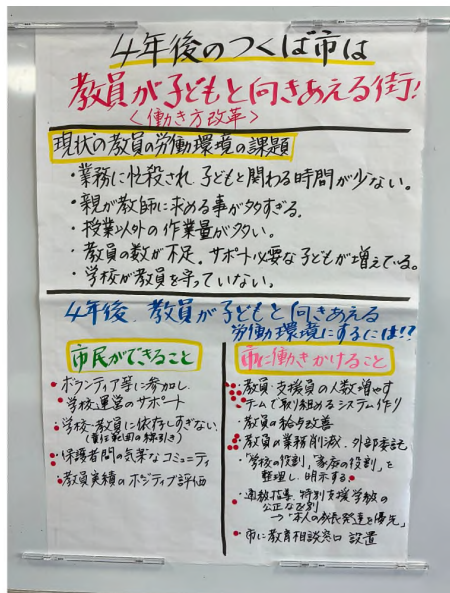 4年後のつくば市は
教員が子どもと向きあえる街!
〈働き方改革〉
現状の教員の労働環境の課題
・業務に忙殺され、子どもと関わる時間が少ない。
・親が教師に求める事が多すぎる。
・授業以外の作業量が多い。
・教員の数が不足。サポート必要な子どもが増えている。
・学校が教員を守っていない。
4年後、教員が子どもと向きあえる
労働環境にするには!?
市民ができること
・ボランティア等に参加し、
学校運営のサポート
・学校・教員に依存しすぎない。
(責任範囲の線引き)
・保護者間の気楽なコミュニティ
・教員実績のポジティブ評価
市に働きかけること
・教員・支援員の人数増やす
・チームで取り組めるシステム作り
・教員の給与改善
・教員の業務削減、外部委託
・「学校の役割」「家庭の役割」を
整理し、明示する
・通教指導、特別支援学級の
公正な
→「本人の成長発達を優先」
・市に教育相談窓口 設置